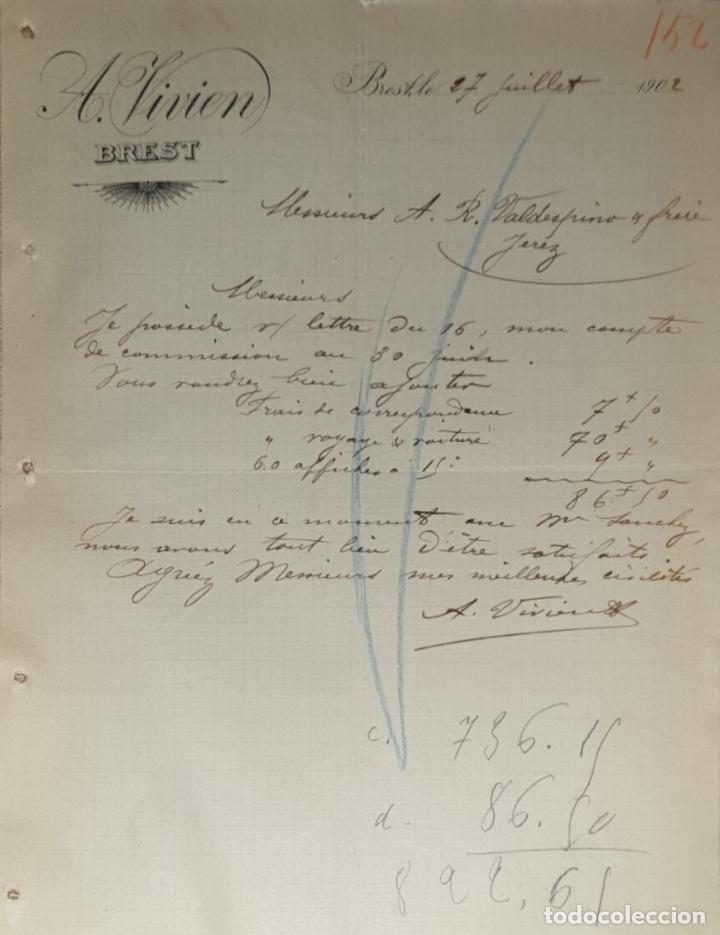 152
A. Vivien
BREST
Brest, le 27 juillet 1902
Messieurs A. R. Valdespino & frère
Jerez
Messieurs
Je possède v/ lettre du 16, mon compte
de commission au 30 juin.
Vous voudrez bien ajouter
Frais de correspondance 7 50
" voyage & voiture 70 "
60 affiches à 15 9 "
86 50
Je suis en ce moment avec Mr Sanchez,
nous avons tout lieu d'être satisfaits
Agréez Messieurs mes meilleures civilités
A. Vivien
c. 736.15
d. 86.50
822,65
todocoleccion
todocoleccion.net